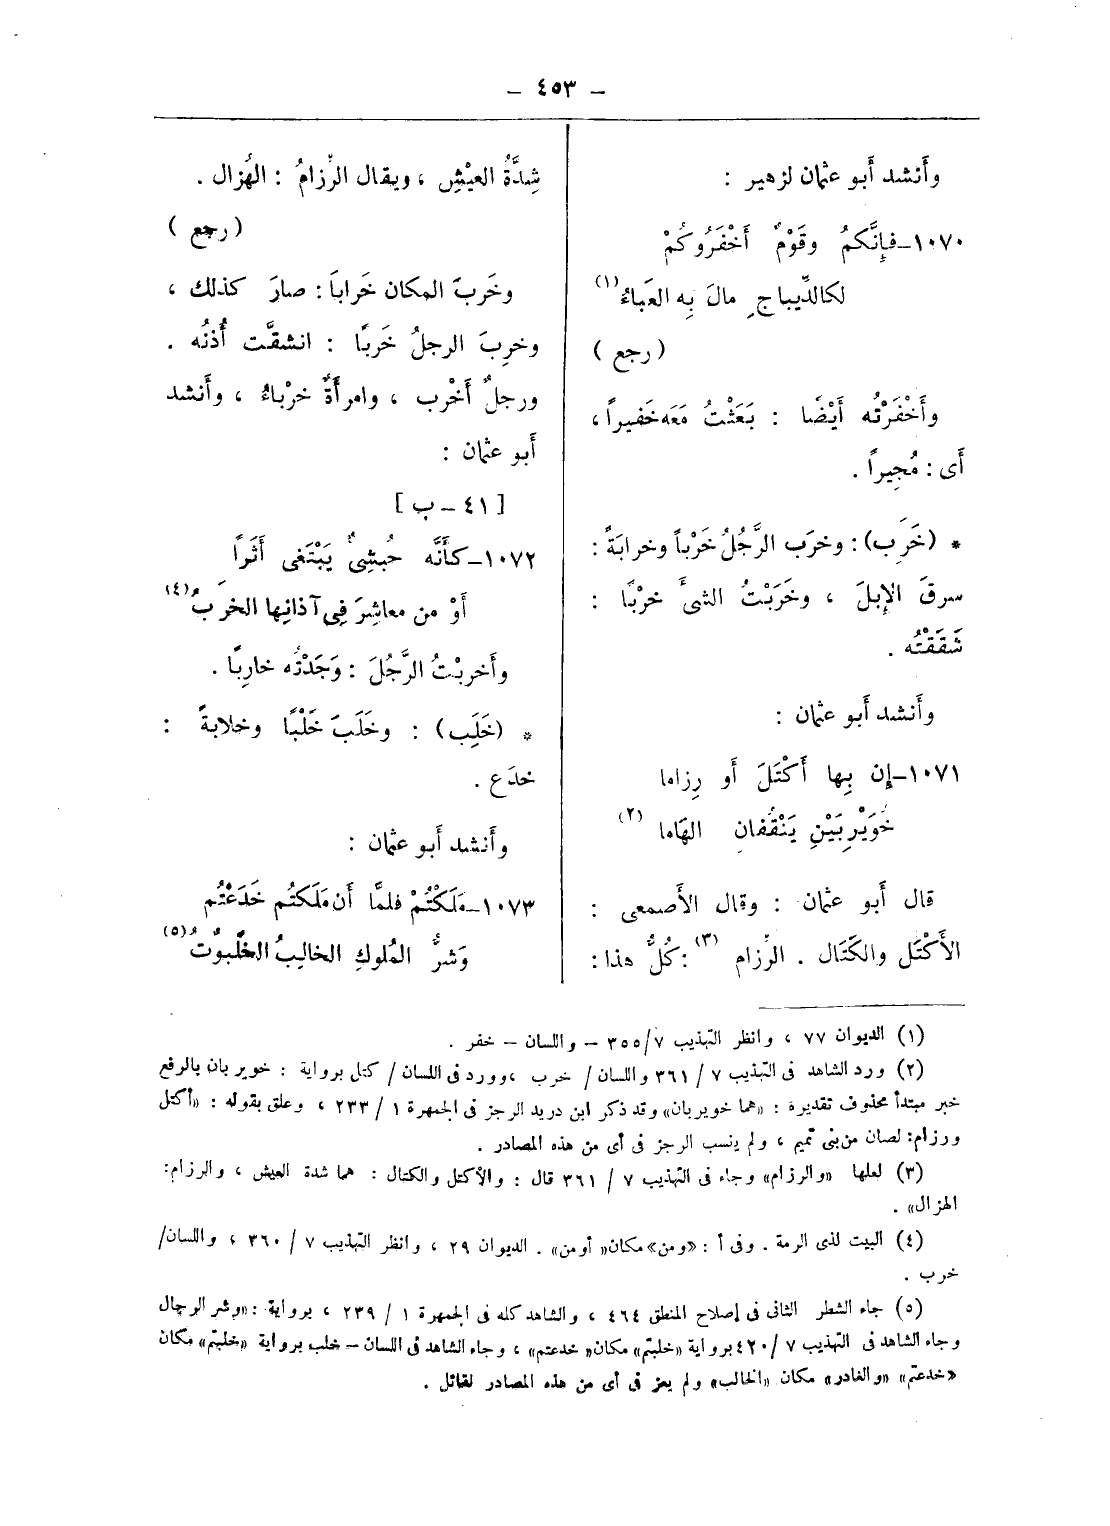 – ٤٥٣ –
وأَنشد أَبو عثمان لزهير :
١٠٧٠–فإِنَّكمُ وقَوْمٌ أَخْفَرُوكُمْ
لكالدِّيباجِ مالَ بِه العَباءُ (١)
( رجع )
وأَخْفَرْتُه أَيْضًا : بَعَثْتُ مَعَه خَفيراً ،
أَى : مُجِيراً .
* (خَرِب) : وخرَب الرَّجُلُ خَرْباً وخرابَةً :
سرقَ الإِبلَ ، وخَرَبْتُ الشئَ خرْبًا :
شَقَقْتُه .
وأَنشد أَبو عثمان :
١٠٧١–إِن بِها أَكْتَلَ أَو رِزاما
خُوَيْرِبَيْنِ يَنْقُفانِ الهَاما (٢)
قال أَبو عثمان : وقال الأَصمعى :
الأَكْتَل والكَتَال . الرِّزام (٣) : كُلُّ هذا :
شِدَّةُ العيْشِ ، ويقال الرِّزامُ : الهُزال .
( رجع )
وخَربَ المكان خَراباً : صارَ كذلك ،
وخرِبَ الرجلُ خَربًا : انشقَّت أُذنُه .
ورجلٌ أَخْرب ، وامرأَةٌ خرْباءُ ، وأَنشد
أَبو عثمان :
[ ٤١ – ب ]
١٠٧٢–كأَنَّه حُبشِىٌ يَبْتَغى أَثَراً
أَوْ من معاشِرَ فِى آذانِها الخرَبُ (٤)
وأَخربْتُ الرَّجُلَ : وَجَدْتُه خارِبًا .
* (خَلَب) : وخَلَبَ خَلْبًا وخلابةً :
خدَع .
وأَنشد أَبو عثمان :
١٠٧٣–مَلَكْتُمْ فلمَّا أَن مَلَكتُم خَدَعْتُم
وَشرُّ المُلوكِ الخالِبُ الخَلَبوتُ (٥)
(١) الديوان ٧٧ ، وانظر التهذيب ٣٥٥/٧ – واللسان – خفر .
(٢) ورد الشاهد فى التهذيب ٧ / ٣٦١ واللسان / خرب ، وورد فى اللسان / كتل برواية : خويربان بالرفع
خبر مبتدأ محذوف تقديره : «هما خويربان» وقد ذكر ابن دريد الرجز فى الجمهرة ١ / ٢٣٣ ، وعلق بقوله : «أكتل
ورزام: لصان من بنى تميم ، ولم ينسب الرجز فى أى من هذه المصادر .
(٣) لعلها «والرزام» وجاء فى التهذيب ٧ / ٣٦١ قال : والأكتل والكتال : هما شدة العيش ، والرزام:
الهزال» .
(٤) البيت لذى الرمة . وفى أ : «ومن» مكان «أومن» . الديوان ٢٩ ، وانظر التهذيب ٧ / ٣٦٠ ، واللسان/
خرب .
(٥) جاء الشطر الثانى فى إصلاح المنطق ٤٦٤ ، والشاهد كله فى الجمهرة ١ / ٢٣٩ ، برواية : «وشر الرجال
وجاء الشاهد فى التهذيب ٤٢٠/٧ برواية «خلبتم» مكان «خدعتم» ، وجاء الشاهد فى اللسان – خلب برواية «خلبتم» مكان
«خدعتم» «والغادر» مكان «الخالب» ولم يعز فى أى من هذه المصادر لقائل .